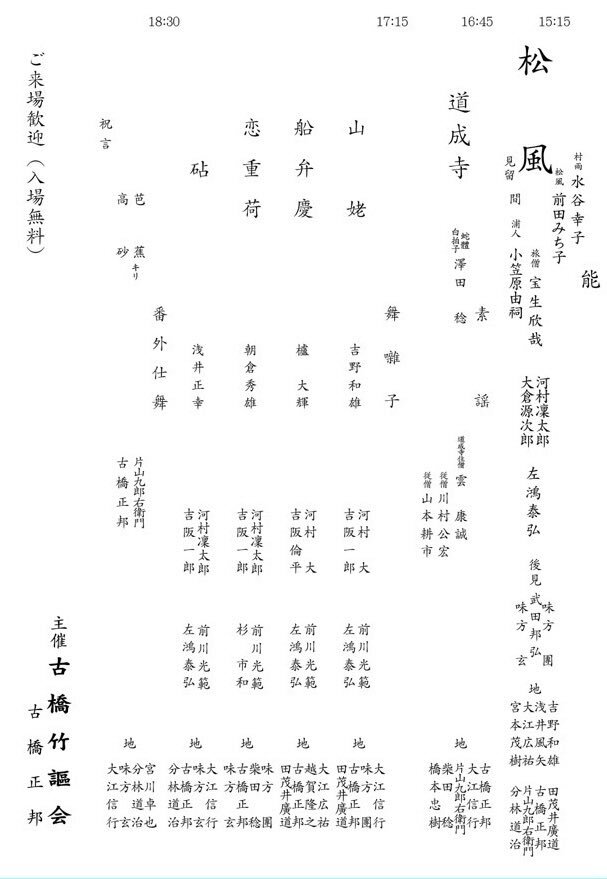 15:15
能
松風
見留
村雨 水谷幸子
松風 前田みち子
旅僧 宝生欣哉
間 浦人 小笠原由祠
河村凜太郎
大倉源次郎
左鴻泰弘
後見 武田邦弘
味方團
味方玄
地
吉野和雄
浅井風矢
大江広祐
宮本茂樹
田茂井廣道
古橋正邦
片山九郎右衛門
分林道治
16:45
素謡
道成寺
蛇體
白拍子 澤田稔
道成寺住僧 雲康誠
従僧 川村公宏
従僧 山本耕市
地
古橋正邦
大江信行
片山九郎右衛門
柴田稔
橋本忠樹
17:15
舞囃子
山姥
吉野和雄
河村大
吉阪一郎
前川光範
左鴻泰弘
地
大江信行
味方團
古橋正邦
田茂井廣道
船弁慶
櫨大輝
河村大
吉阪倫平
前川光範
左鴻泰弘
地
大江広祐
越賀隆之
古橋正邦
田茂井廣道
恋重荷
朝倉秀雄
河村凜太郎
吉阪一郎
前川光範
杉市和
地
味方團
柴田稔
古橋正邦
味方玄
砧
浅井正幸
河村凜太郎
吉阪一郎
前川光範
左鴻泰弘
地
大江信行
味方玄
古橋正邦
分林道治
18:30
番外仕舞
芭蕉 キリ
片山九郎右衛門
祝言
高砂
古橋正邦
地
宮川卓也
分林道治
味方玄
大江信行
ご来場歓迎（入場無料）
主催 古橋竹謳会
古橋正邦